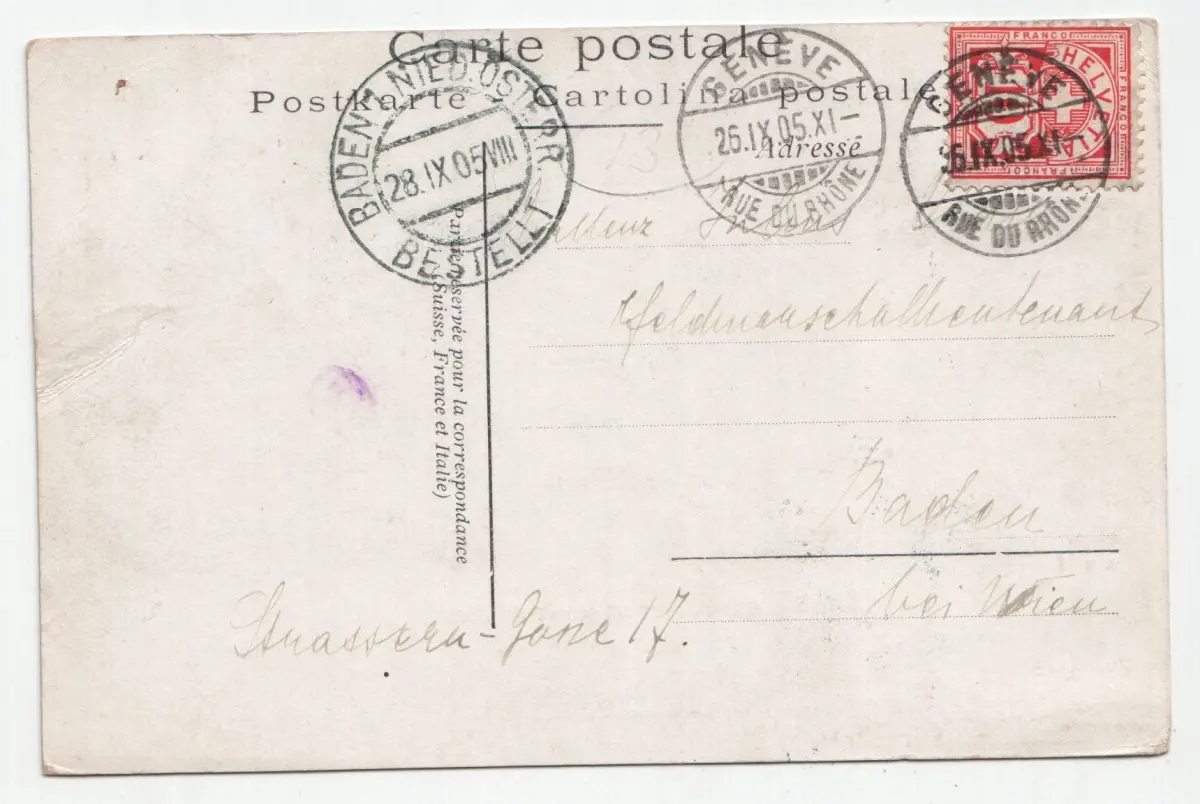 Carte postale
Postkarte Cartolina postale
Adresse
BADEN NIED.ÖSTERR.
28.IX 05 VIII
BESTELLT
GENÈVE
26.IX.05.XI-
RUE DU RHÔNE
GENÈVE
26.IX.05.XI-
RUE DU RHÔNE
FRANCO
HELVETIA
FRANCO
FRANCO
10
Partie réservée pour la correspondance
(Suisse, France et Italie)
Feldmarschallieutenant
Baden
bei Wien
17.